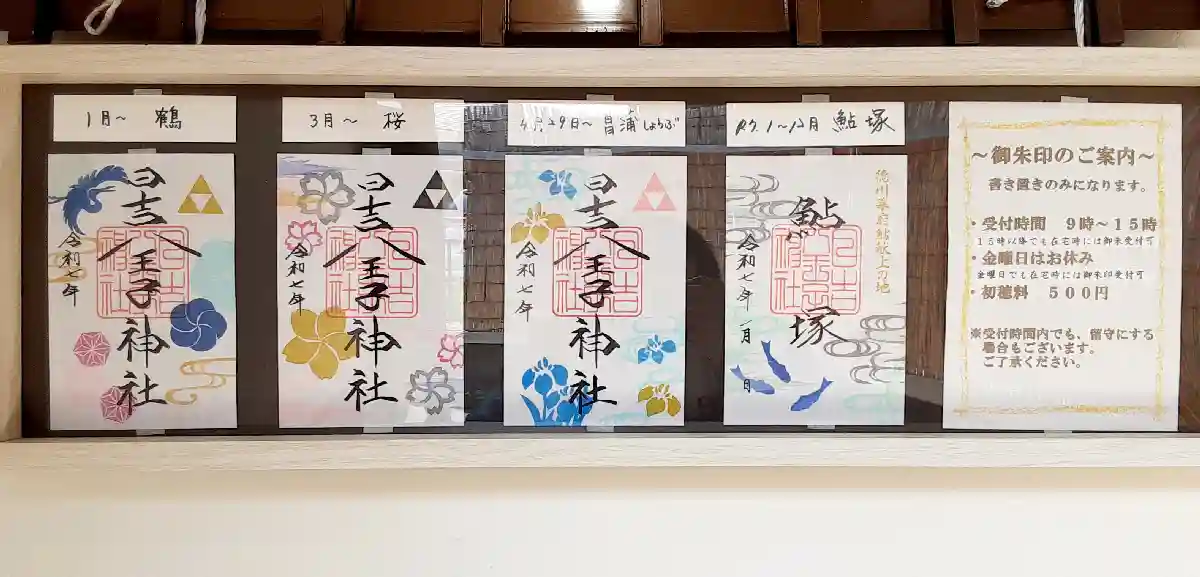 1月～ 鶴
日吉八王子神社
令和七年
3月～ 桜
日吉八王子神社
令和七年
4月29日～ 菖蒲しょうぶ
日吉八王子神社
令和七年
R7.1～12月 鮎塚
徳川幕府鮎献上の地
鮎塚
令和七年 一月
日
～御朱印のご案内～
書き置きのみになります。
・受付時間 9時～15時
15時以降でも在宅時には御朱受付可
・金曜日はお休み
金曜日でも在宅時には御朱印受付可
・初穂料 500円
※受付時間内でも、留守にする
場合もございます。
ご了承ください。